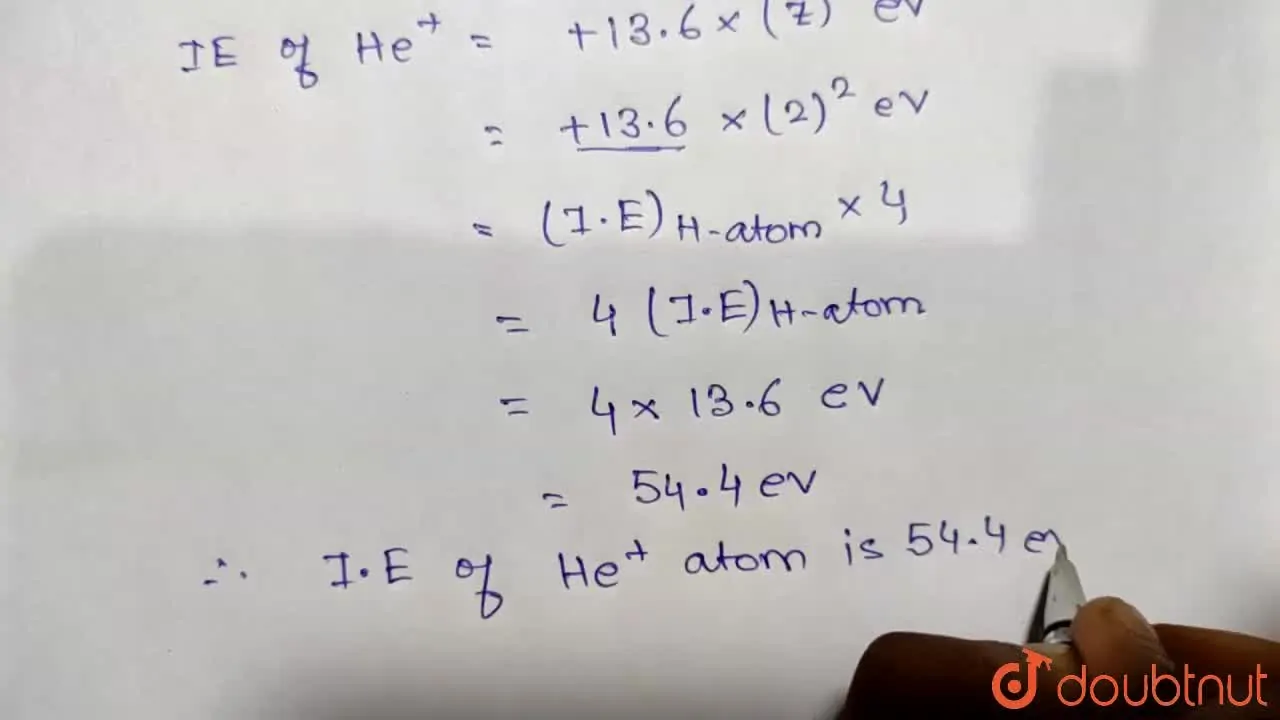 IE of He⁺ = +13.6 × (Z) eV
= +13.6 × (2)² eV
= (I.E) H-atom × 4
= 4 (I.E) H-atom
= 4 × 13.6 eV
= 54.4 eV
∴ I.E of He⁺ atom is 54.4 e
doubtnut